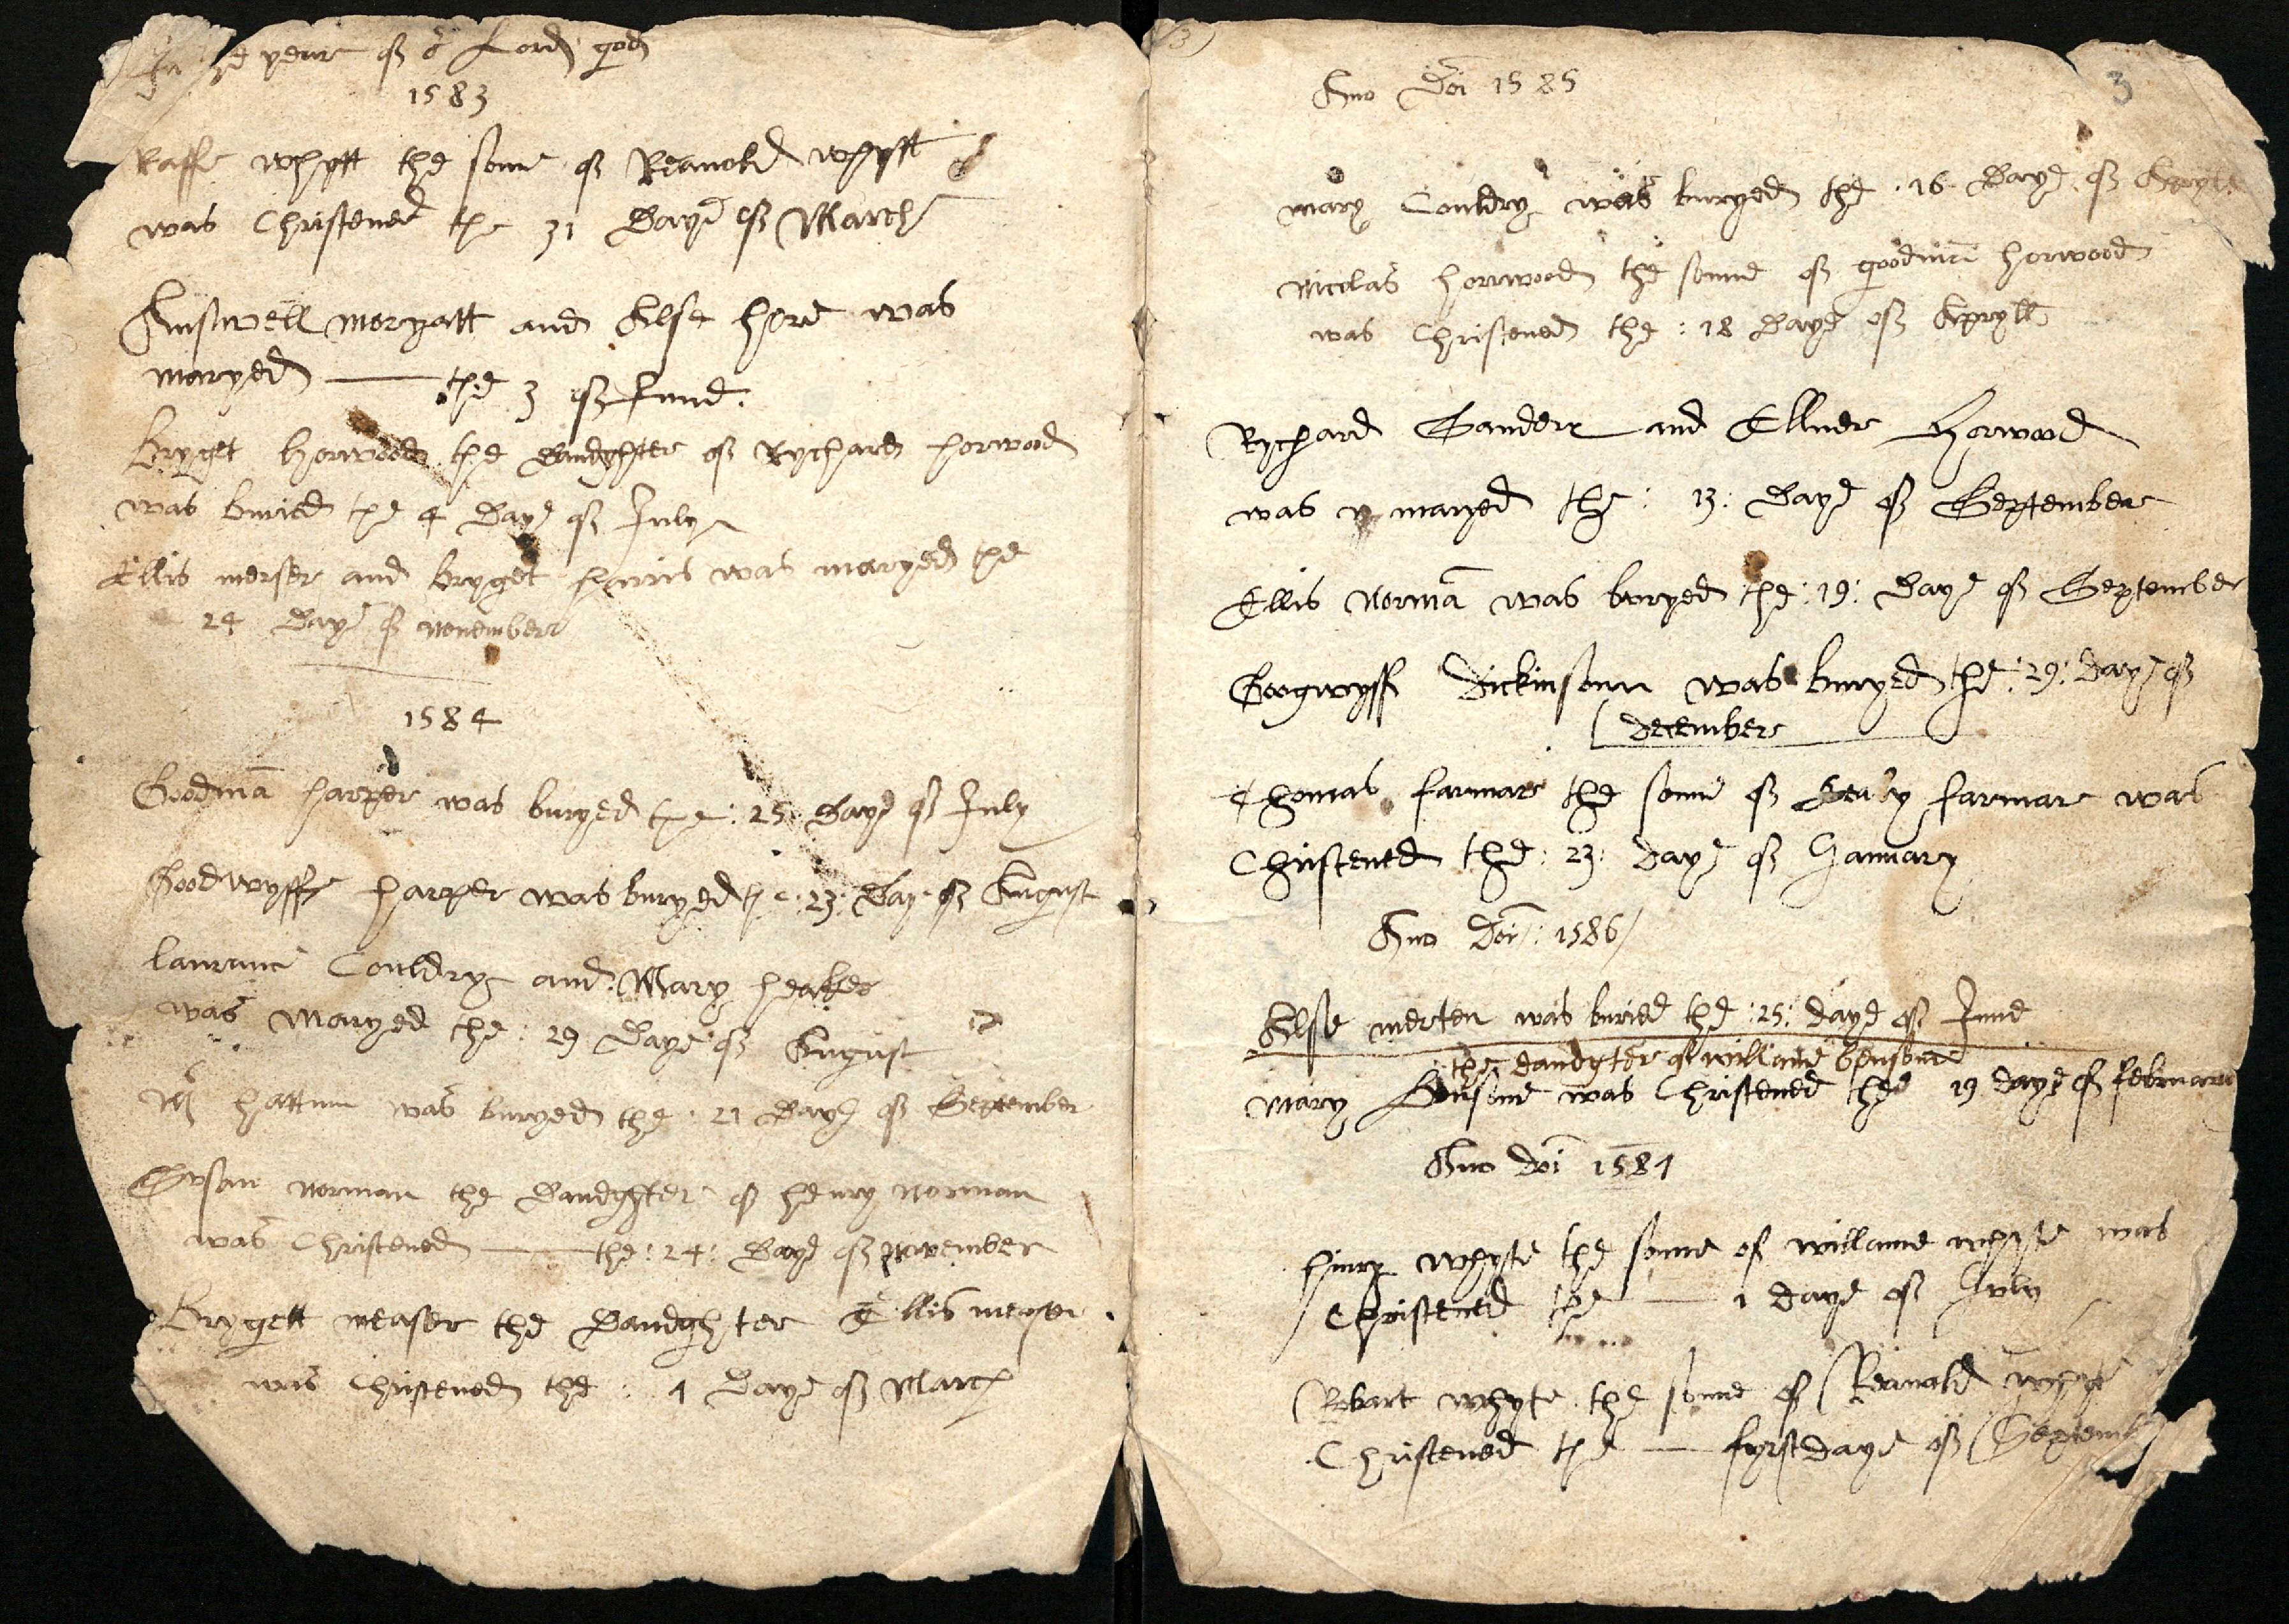 In ye yeare of or Lord god
1583
Raffe whytt the sone of Reanold whytt
was Christened the 31 Daye of March
Answell moryatt and Alse hore was
maryed the 3 of June.
Bryget horwood the Daudghter of Rychard horwood
was buried the 4 Daye of July
Ellis merser and Bryget was maryed the
24 Daye of november
1584
Goodmã harper was buryed the : 25 Daye of July
Goodwyffe harper was buryed the : 23 : Day of August
laurance Couldry and Mary
was Maryed the : 29 Daye of August
Mr hattum was buryed the : 21 Daye of September
norman the Daudghter of henry norman
was Christened the : 24 : Daye of november
Brygett measer the Daudghter Ellis measer
was Christened the : 1 Daye of March
3
Ano Doi 1585
mary Couldry was buryed the : 16 Daye of Apryll
nicolas horrwood the sonne of goodmã horwood
was Christened the : 18 Daye of Apryll
Rychard Sanderr and Ellner Horwood
was maryed the : 13 : Daye of September
Ellis normã was buryed the : 19 : Daye of September
Googwyff Dickinsonn was buryed the : 29 : Daye of
December
Thomas farmar the sonne of farmar was
Christened the : 23 : Daye of January
Ano Doi : 1586
Alse merten was buried the : 25 : daye of June
the daudgter of willame bensone
Mary Bensone was Christened the 19 daye of february
Ano doi 1587
hinry whyte the sonne of willame whyte was
Christened the 1 daye of July
Robart whyte the sonne of Reanold whyte
Christened the fyrst daye of Septemb